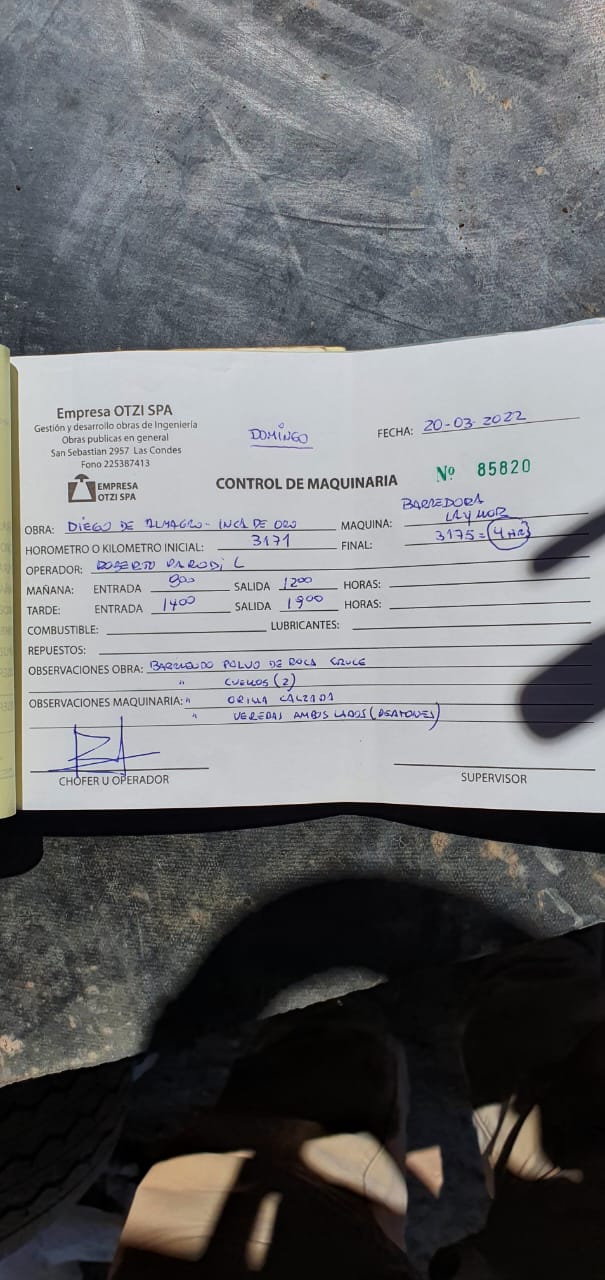 Empresa OTZI SPA
Gestión y desarrollo obras de Ingeniería
Obras publicas en general
San Sebastian 2957 Las Condes
Fono 225387413
EMPRESA
OTZI SPA
DOMINGO
FECHA: 20-03-2022
CONTROL DE MAQUINARIA
Nº 85820
OBRA: DIEGO DE ALMAGRO - INCA DE ORO
MAQUINA: BARREDORA
LAYMOR
HOROMETRO O KILOMETRO INICIAL: 3171 FINAL: 3175 = 4 HRS
OPERADOR: ROBERTO PARODI L
MAÑANA: ENTRADA 900 SALIDA 1200 HORAS:
TARDE: ENTRADA 1400 SALIDA 1900 HORAS:
COMBUSTIBLE: LUBRICANTES:
REPUESTOS:
OBSERVACIONES OBRA: BARRIENDO POLVO DE ROCA CRUCE
" CUELLOS (2)
OBSERVACIONES MAQUINARIA: " ORILLA CALZADA
" VEREDAS AMBOS LADOS (PEATONES)
CHOFER U OPERADOR
SUPERVISOR